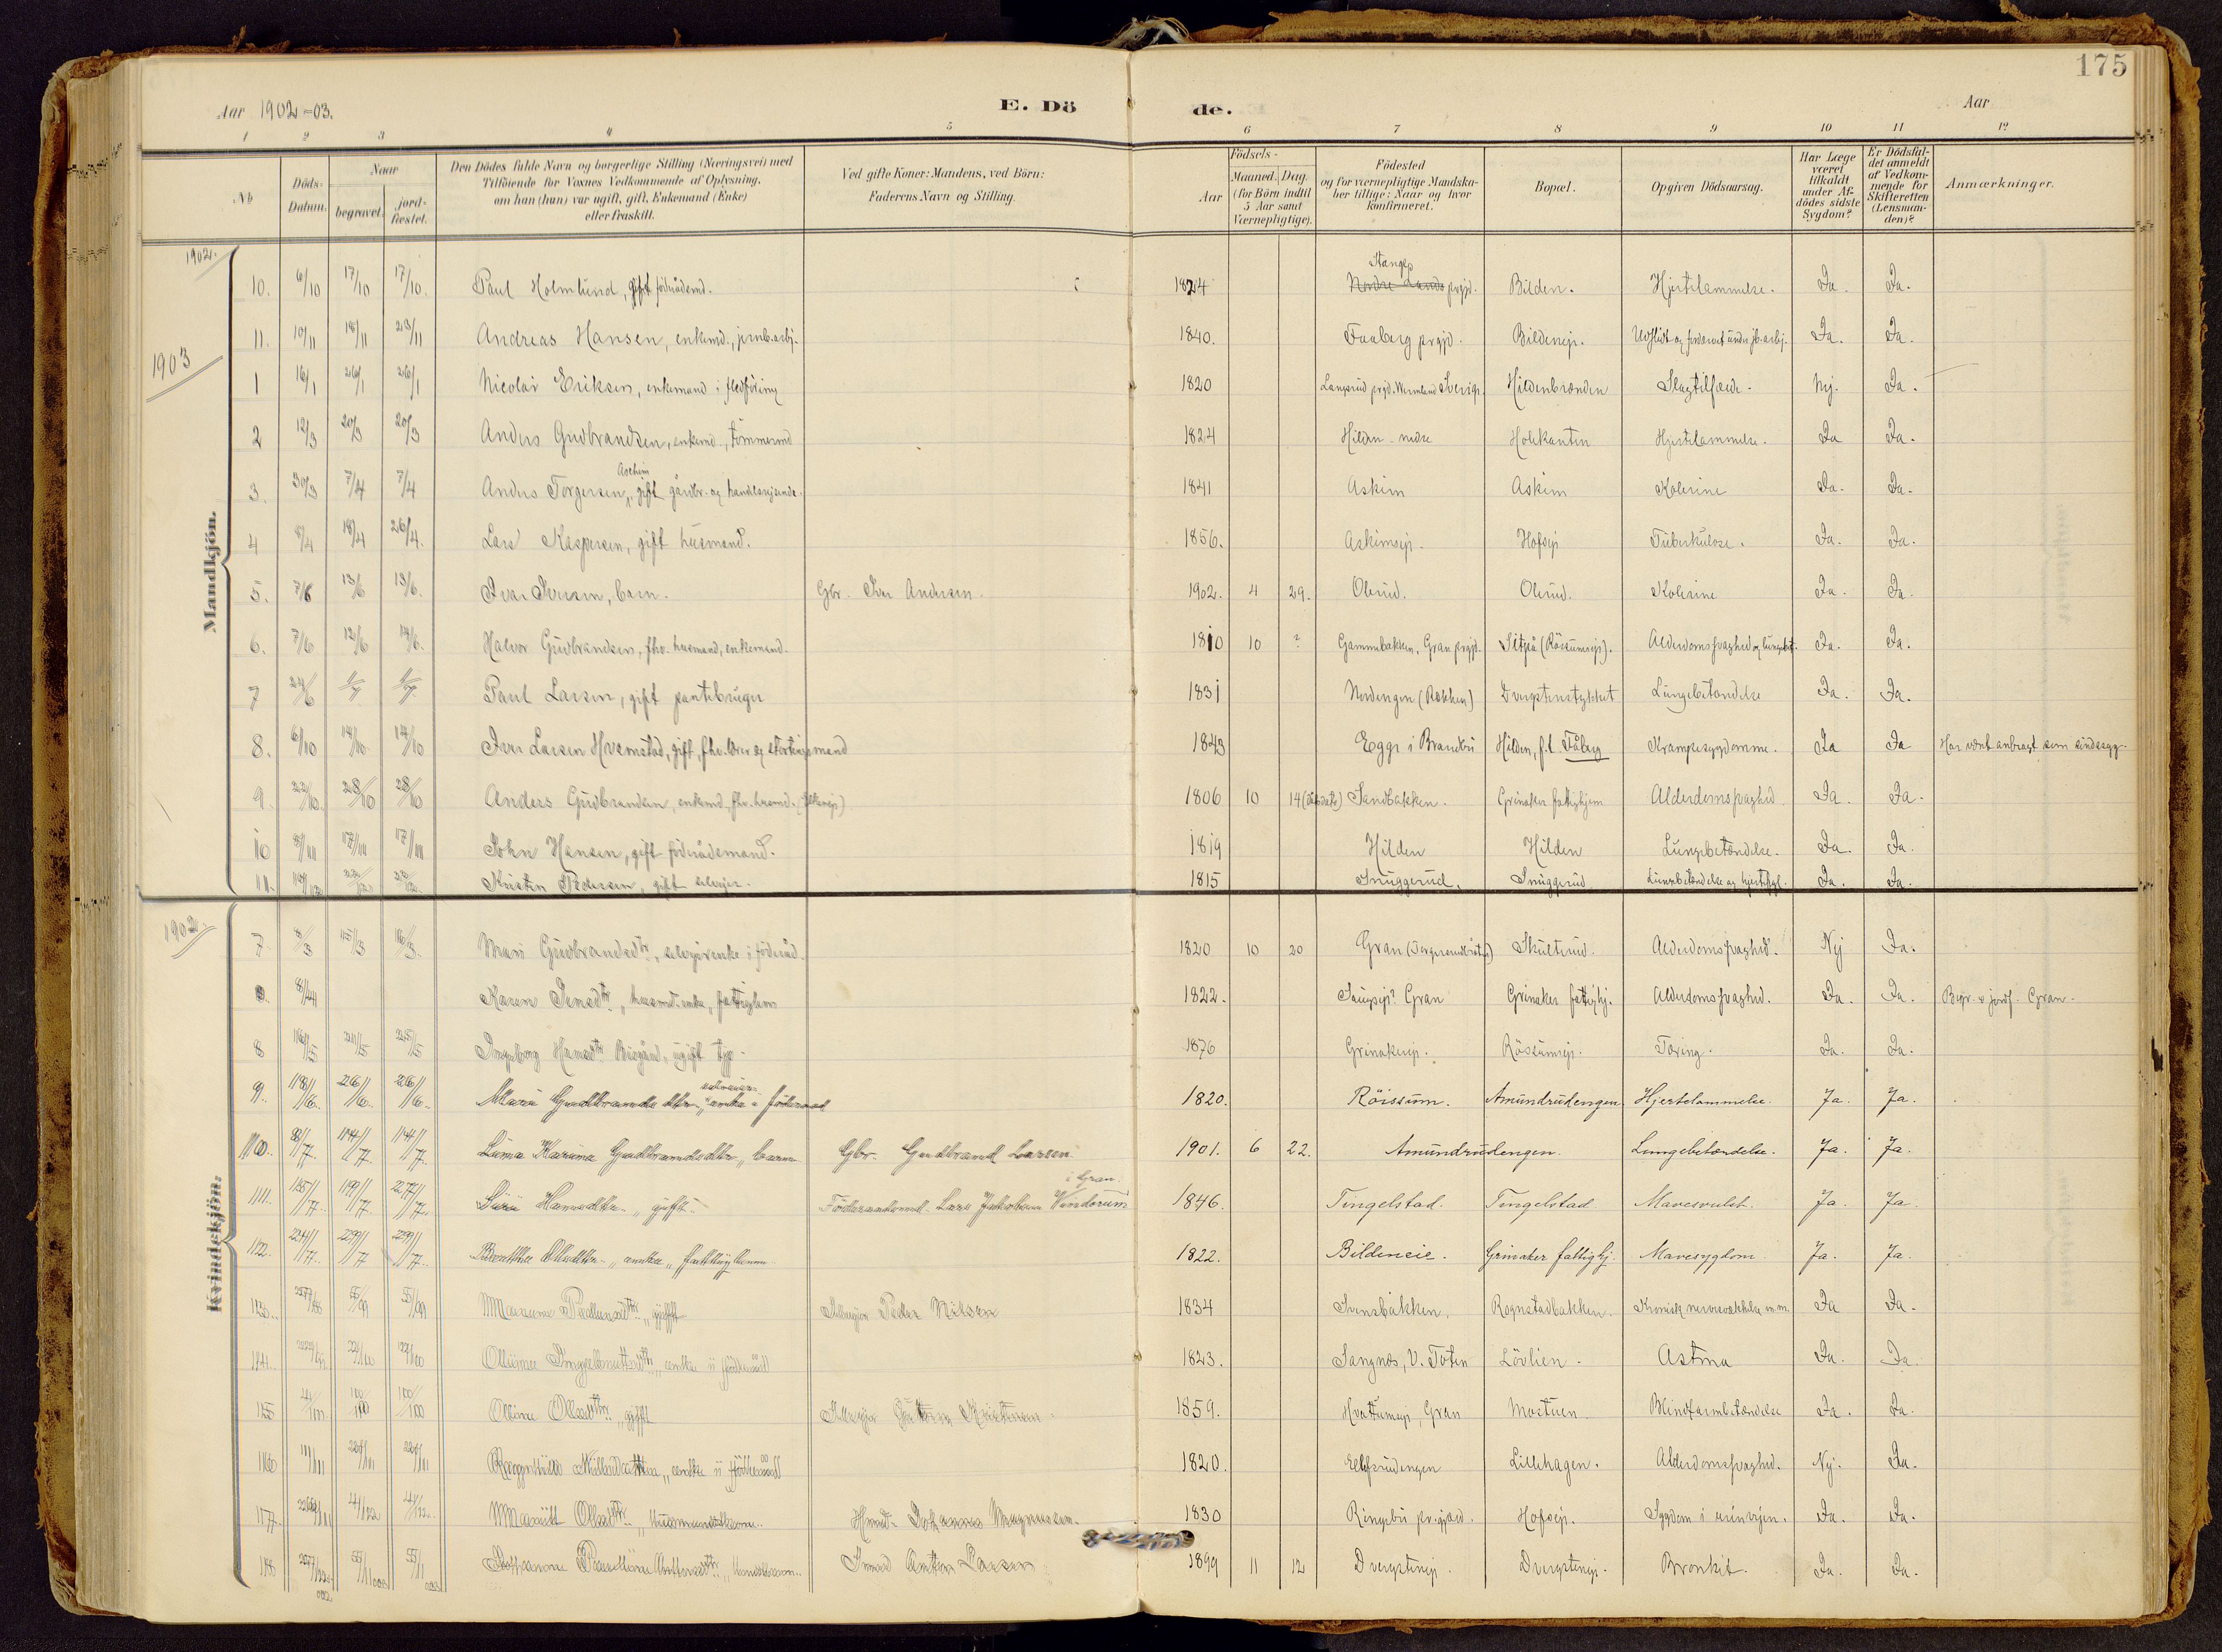 175
Aar 1902-03. E. Dö de. Aar
1 2 3 4 5 6 7 8 9 10 11 12
No
Döds-Datum.
Naar begravet. jordfæstet.
Den Dödes fulde Navn og borgerlige Stilling (Næringsvei) med
Tilföiende for Voxnes Vedkommende af Oplysning,
om han (hun) var ugift, gift, Enkemand (Enke)
eller fraskilt.
Ved gifte Koner: Mandens, ved Börn:
Faderens Navn og Stilling.
Födsels-
Aar
Maaned. Dag.
(for Börn indtil
5 Aar samt
Værnepligtige).
Födested
og for værnepligtige Mandska-
ber tillige: Naar og hvor
konfirmeret.
Bopæl.
Opgiven Dödsaarsag.
Har Læge
været
tilkaldt
under Af-
dödes sidste
Sygdom?
Er Dödsfal-
det anmeldt
af Vedkom-
mende for
Skifteretten
(Lensman-
den)?
Anmærkninger.
Mandkjön.
1902.
10. 6/10 17/10 17/10. Paul Holmlund, gift föderådsmd. 1824 Stange Nordre Lands prgjd. Bilden. Hjertelammelse. Ja. Ja.
11. 10/11 18/11 23/11 Andreas Hansen, enkemd., jernb.arbj. 1840. Faaberg prgjd. Bildeneje. Ja. Ja.
1903
1 16/1 26/1 26/1 Nicolai Eriksen, enkemand i fledföring 1820 Langserud prgjd. Wermland Sverige. Hildenbrænden Slagtilfælde. Nej. Ja.
2 12/3 20/3 20/3 Anders Gudbrandsen, enkemd., tömmermd 1824 Hilden nedre Holekanten Hjertelammelse. Ja Ja.
3. 30/3 7/4 7/4 Anders Torgersen Askim, gift gårdbr. og handelsrejsende. 1841 Askim Askim Kolerine Ja. Ja.
4 8/4 18/4 26/4. Lars Kaspersen, gift husmand. 1856. Askimseje. Hofseje Tuberkulose. Ja. Ja.
5. 7/6 13/6 13/6. Ivar Iversen, barn. Gbr. Iver Andersen. 1902. 4 29. Olerud. Olerud. Kolerine Ja. Ja.
6. 7/6 12/6 14/6. Halvor Gudbrandsen, fhv. husmand, enkemand. 1810 10 ? Gammebakken, Gran prgjd. (Rössumseje). Alderdomssvaghed og lungebet. Ja. Ja.
7 24/6 1/7 1/7. Paul Larsen, gift pantebruger 1831 Nordengen (Rækken) Dvergstenstykket Lungebetændelse Ja. Ja.
8. 6/10 14/10 14/10 Iver Larsen Hvamstad, gift, fhv. lærer og stortingsmand 1843 Egge i Brandbu Hilden, f.t. Fåberg Krampesygdomme. Ja Ja Har været anbragt som sindssyg.
9. 22/10 28/10 28/10 Anders Gudbrandsen, enkemd., fhv. husmd. 1806 10 14 Sandbakken. Grinaker fattighjem Alderdomssvaghed. Ja. Ja.
10 8/11 17/11 17/11 John Hansen, gift föderådsmand. 1819 Hilden Hilden Lungebetændelse. Ja. Ja.
11. Kristen Pedersen, gift selvejer. 1815 Snuggerud. Snuggerud Lungebetændelse og hjertefejl. Ja. Ja.
Kvindekjön.
1902.
7. 8/3 15/3 16/3. Mari Gudbrandsdtr., selvejerenke i föderåd. 1820 10 20 Gran Skulterud. Alderdomssvaghed. Nej Ja.
Karen Jensdtr, husmd.enke, fattiglem 1822. Gran Grinaker fattighj. Alderdomssvaghed. Ja. Ja. Begr. & jordf. Gran.
8 16/5 Ingeborg Hansdtr Busgård, ugift tjp. 1876 Grinakereje. Rössumseje. Tæring. Ja. Ja.
9. 18/6. 26/6. 26/6. Maria Gudbrandsdtr, selveier-enke i föderaad 1820. Röissum. Amundrudengen Hjertelammelse. Ja. Ja.
10. 8/7. 14/7. 14/7. Karina Gudbrandsdtr, barn Gbr. Gudbrand Larsen 1901. 6 22. Amundrudengen. Lungebetændelse. Ja. Ja.
11. 15/7. 19/7. 27/7. Siri Hansdtr. gift. Föderaadsmd. Lars Jakobsen Vindorum i Gran. 1846. Tingelstad. Tingelstad Mavesvulst. Ja. Ja.
12. 24/7. 29/7 29/7. Berthe Olsdtr, enke, fattiglem 1822. Bildeneie. Grinaker fattighj. Mavesygdom Ja. Ja.
13. Marie Pedersdtr, gift Selvejer Peder Nilsen 1834 Svensbakken. Rognstadbakken. Kronisk nervesvækkelse m.m. Ja Ja.
14. Oline Ingebretsdtr, enke i föderåd 1823. Sangnæs, V. Toten Lövlien. Astma Ja. Ja.
15 Oline Olsdtr, gift Selvejer Guttorm Kristensen 1859. Hvattumseje, Gran Mostuen. Blindtarmbetændelse Ja. Ja.
16 Ragnhild enke i föderåd 1820. Lillehagen. Alderdomssvaghed. Nej. Ja.
17. Marit Olsdtr, husmandskone. Husmd. Johannes Magnussen. 1830 Ringebu prgjæld. Hofseje. Sygdom i urinvejen. Ja. Ja.
18 Anton Larsen 1899 11 12 Dvergsteneje. Dvergsteneje. Bronkit. Ja. Ja.